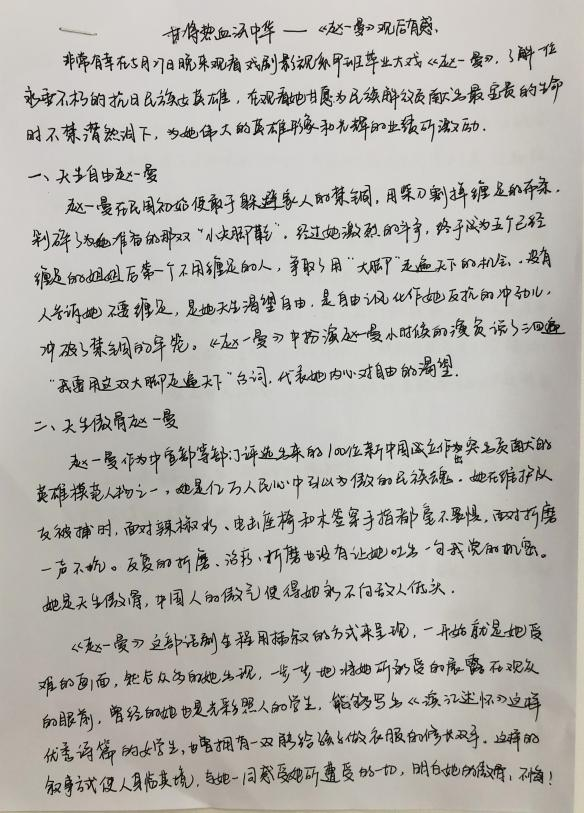 甘将热血沃中华——《赵一曼》观后有感.
非常有幸在5月27日晚来观看戏剧影视系甲班毕业大戏《赵一曼》，了解一位
永垂不朽的抗日民族女英雄，在观看她甘愿为民族解放贡献出最宝贵的生命
时不禁潸然泪下，为她伟大的英雄形象和光辉的业绩所激动.
一、天生自由赵一曼
赵一曼在民国初始便敢于躲避家人的禁锢，用柴刀剁掉缠足的布条，
剁碎了为她准备的那双“小尖脚鞋”。经过她激烈的斗争，终于成为五个已经
缠足的姐姐后第一个不用缠足的人，争取了用“大脚”走遍天下的机会。没有
人告诉她不要缠足，是她天生渴望自由，是自由让化作她反抗的冲动，
冲破了禁锢的牢笼。《赵一曼》中扮演赵一曼小时候的演员说了三四遍
“我要用这双大脚走遍天下”台词，代表她内心对自由的渴望.
二、天生傲骨赵一曼
赵一曼作为中宣部等部门评选出来的100位新中国成立作出突出贡献的
英雄模范人物之一，她是亿万人民心中引以为傲的民族魂。她在维护队
友被捕时，面对辣椒水、电击座椅和木签穿手指都毫不畏惧，面对折磨
一声不吭。反复的折磨、治疗、折磨也没有让她吐出一句我党的机密。
她是天生傲骨，中国人的傲气使得她永不向敌人低头.
《赵一曼》这部话剧全程用插叙的方式来呈现，一开始就是她受
难的画面，然后众多的她出现，一步一步地将她所承受的展露在观众
的眼前，曾经的她也是光彩照人的学生，能够写出《滨江述怀》这样
优秀诗篇的女学生，也曾拥有一双能给孩子做衣服的修长双手。这样的
叙事方式使人身临其境，与她一同感受她所遭受的一切，明白她的傲骨、不悔！